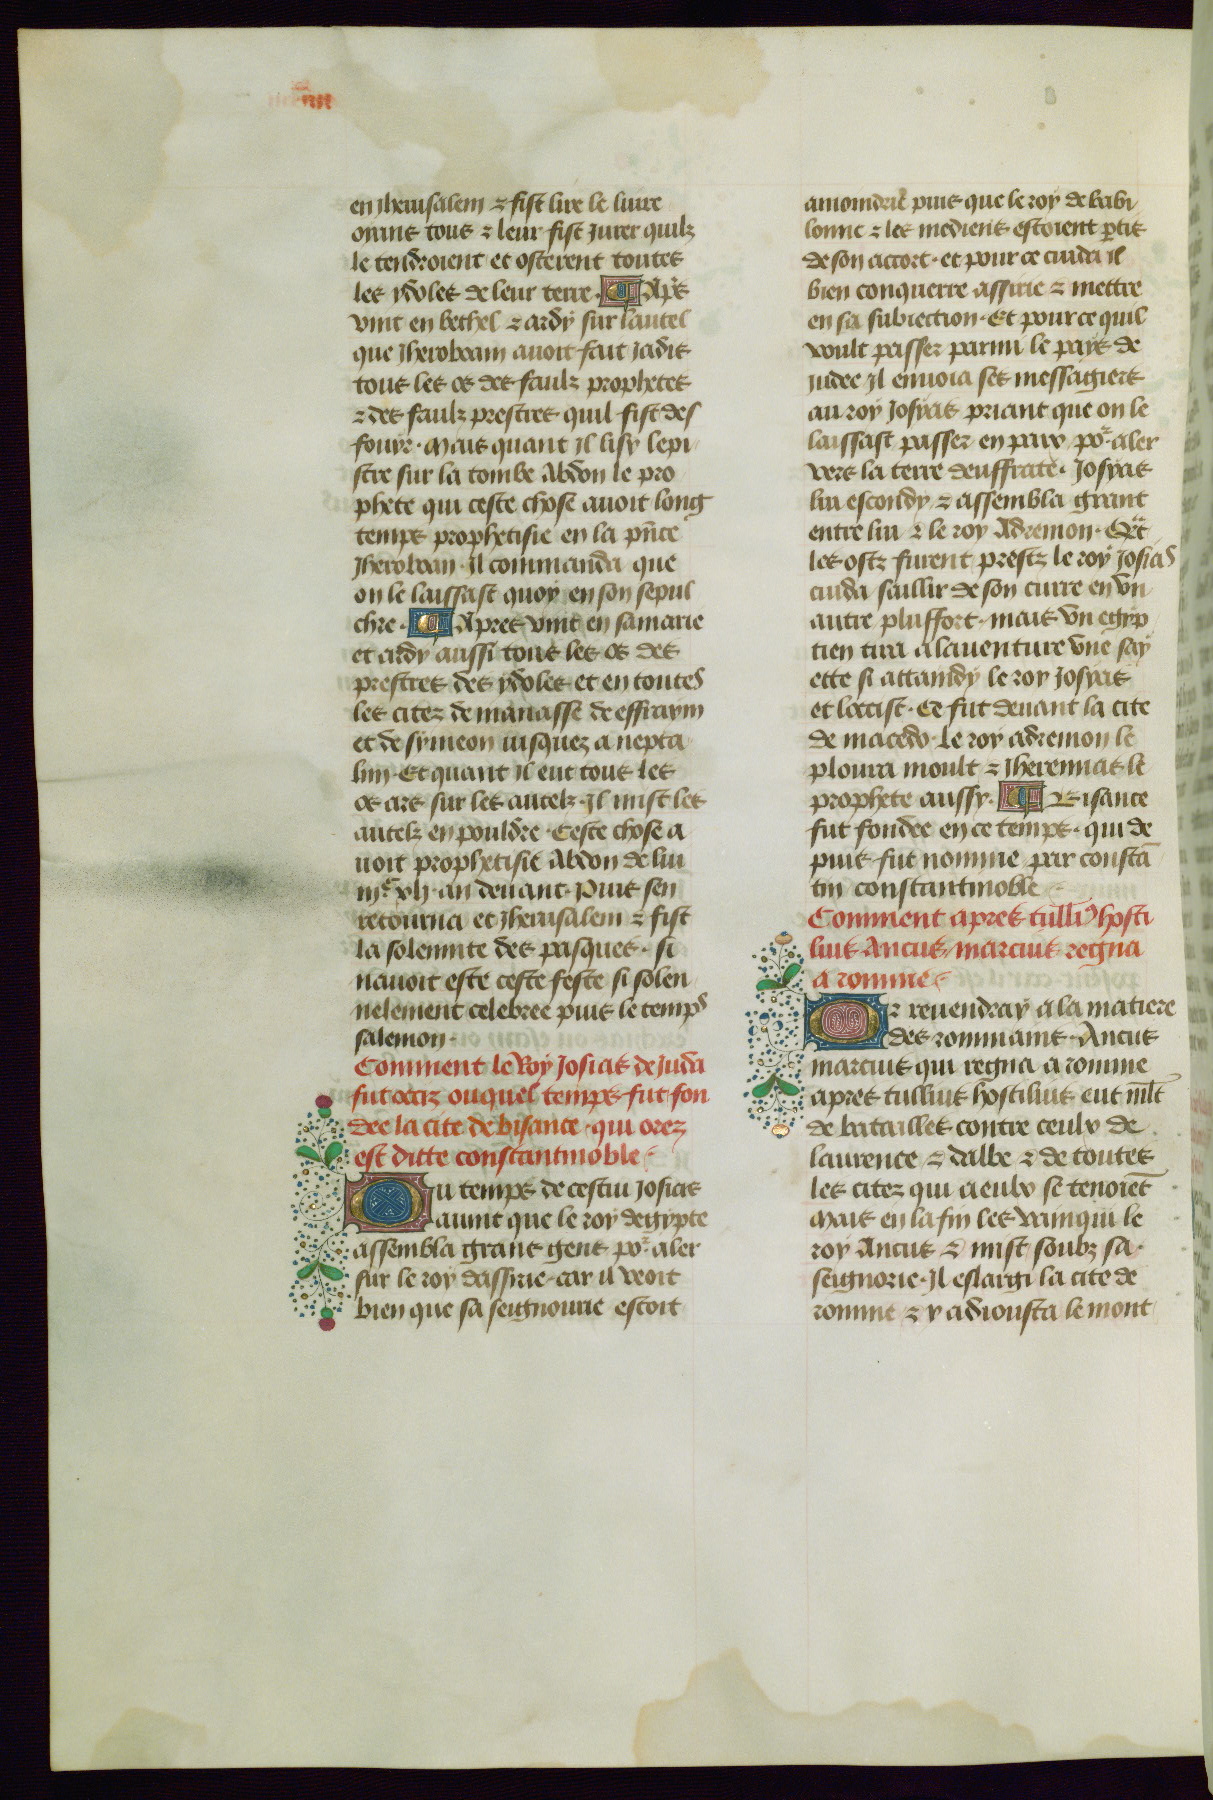 en jherusalem ⁊ fist lire le liure
oyans tous ⁊ leur fist jurer quilz
le tendroient et osterent toutes
les ydoles de leur terre. Apes
vint en bethel ⁊ ardy sur lautel
que jheroboam auoit fait jadis
tous les os des faulz prophetes
⁊ des faulz prestres quil fist des
fouyr. Mais quant il lisy lepi
stre sur la tombe Abdon le pro
phete qui ceste chose auoit long
temps prophetisie en la pnce
jheroboan. Il commanda que
on le laissast quoy en son sepul
chre. Apres vint en samarie
et ardy aussi tous les os des
prestres des ydoles et en toutes
les citez de manasse de effraym
et de symeon iusquez a nepta
lim. Et quant il eut tous les
os ars sur les autelz. Il mist les
autelz en pouldre. Ceste chose a
uoit prophetisie Abdon de lui
an deuant. Puis sen
retourna et jherusalem ⁊ fist
la solemnte des pasques. si
nauoit este ceste feste si solen
nelement celebree puis le temps
salemon.
Comment le Roy josias de juda
fut occiz ouquel temps fut fon
dee la cite de bisance qui orez
est ditte constantinoble
Du temps de cestui josias
auint que le roy degypte
assembla grans gens por aler
sur le roy dassirie. car il veoit
bien que sa seignourie estoit
amoindrie puis que le roy de babi
lonne ⁊ les mediens estoient ptis
de son accort. et pour ce cuida il
bien conquerre assirie ⁊ mettre
en sa subiection. Et pour ce quil
voult passer parmi le pays de
judee il enuoia ses messagiers
au roy josyas priant que on le
laissast passer en paix por aler
vers la terre deuffrate. josyas
lui escondy ⁊ assembla grant
entre lui ⁊ le roy Adremon. Qāt
les ostz furent prestz le roy josias
cuida saillir de son curre en vn
autre plus fort. mais vn egyp
tien tira a lauenture vne say
ette si attaindy le roy josyas
et loccist. Ce fut deuant la cite
de macedo. Le roy adremon le
ploura moult ⁊ jheremias le
prophete aussy. Bisance
fut fondee en ce temps. qui de
puis fut nomme par constā
tin constantinoble
Comment apres tulli9 hosti
lius Ancus marcius regna
a romme
Or reuendray a la matiere
des rommains. Ancus
marcius qui regna a romme
apres tullius hostilius eut mlt
de batailles contre ceulx de
laurence ⁊ dalbe ⁊ de toutes
les citez qui a eulx se tenoiēt
Mais en la fin les vainqui le
roy Ancus ⁊ mist soubz sa
seignorie. Il eslargi la cite de
romme ⁊ y adiousta le mont